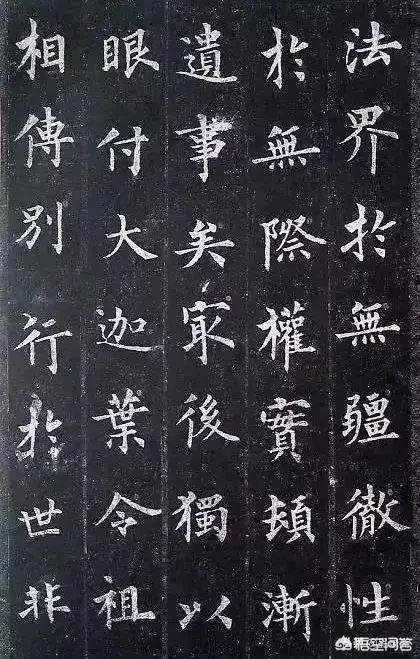 法界於無疆徹性
於無際權實頓漸
遺事矣㝡後獨以
眼付大迦葉令祖
相傳別行於世非
悟空问答